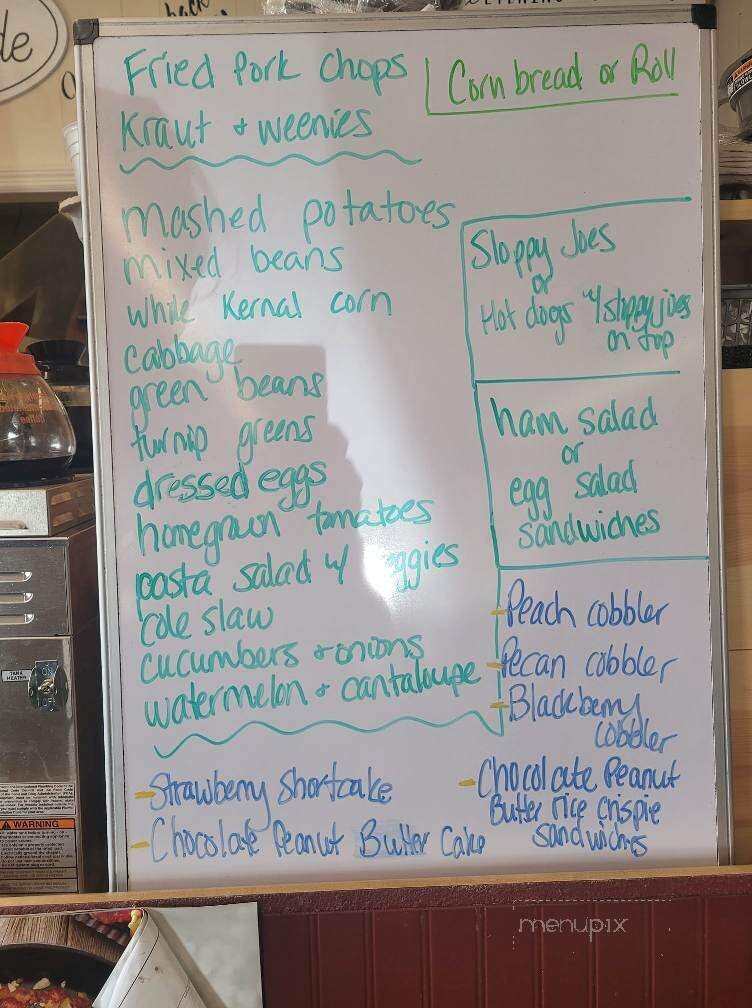 de
Fried Pork Chops
Kraut + weenies
Corn bread or Roll
mashed potatoes
mixed beans
while Kernal corn
cabbage
green beans
turnip greens
dressed eggs
homegrown tomatoes
pasta salad w/ ggies
cole slaw
cucumbers + onions
watermelon + cantaloupe
Sloppy Joes
or
Hot dogs w/ sloppy joes
on top
ham salad
or
egg salad
sandwiches
- Peach cobbler
- Pecan cobbler
- Blackberry
cobbler
- Strawberry Shortcake
- Chocolate Peanut Butter Cake
- Chocolate Peanut
Butter rice crispie
sandwiches
WARNING
menupix